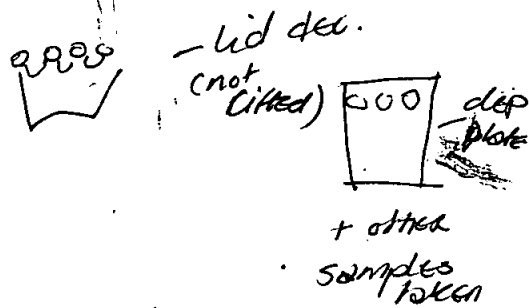 - lid dec.
(not
lifted)
dep
plate
+ other
samples
taken